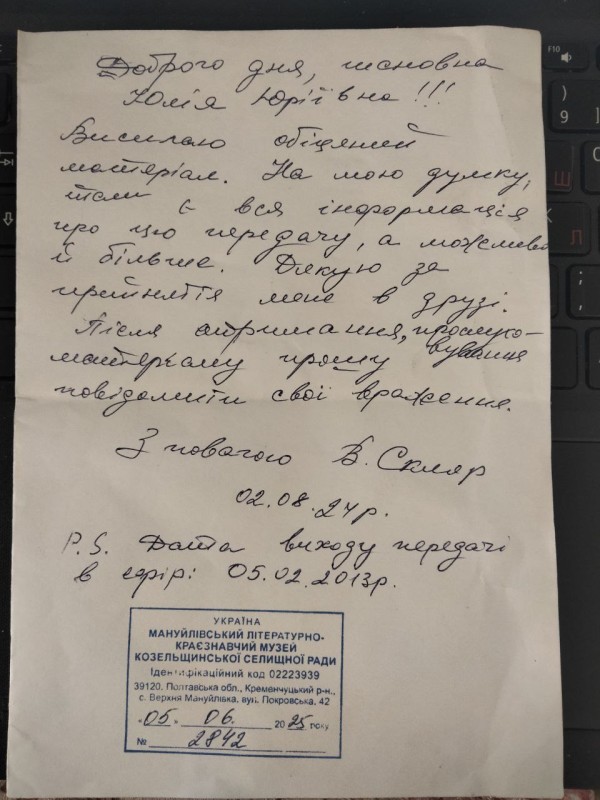 Доброго дня, шановна
Юлія Юріївна!!!
Висилаю обіцяний
матеріал. На мою думку,
там є вся інформація
про цю передачу, а можливо
й більше. Дякую за
прийняття мене в друзі.
Після отримання, прослухо-
вування
матеріалу прошу
повідомити свої враження.
З повагою В. Скляр
02.08.24р.
P.S. Дата виходу передачі
в ефір: 05.02.2013р.
УКРАЇНА
МАНУЙЛІВСЬКИЙ ЛІТЕРАТУРНО-
КРАЄЗНАВЧИЙ МУЗЕЙ
КОЗЕЛЬЩИНСЬКОЇ СЕЛИЩНОЇ РАДИ
Ідентифікаційний код 02223939
39120, Полтавська обл., Кременчуцький р-н.,
с. Верхня Мануйлівка, вул. Покровська, 42
"05" 06 2025 року
№ 2842
F10
)
9
Ш
Л